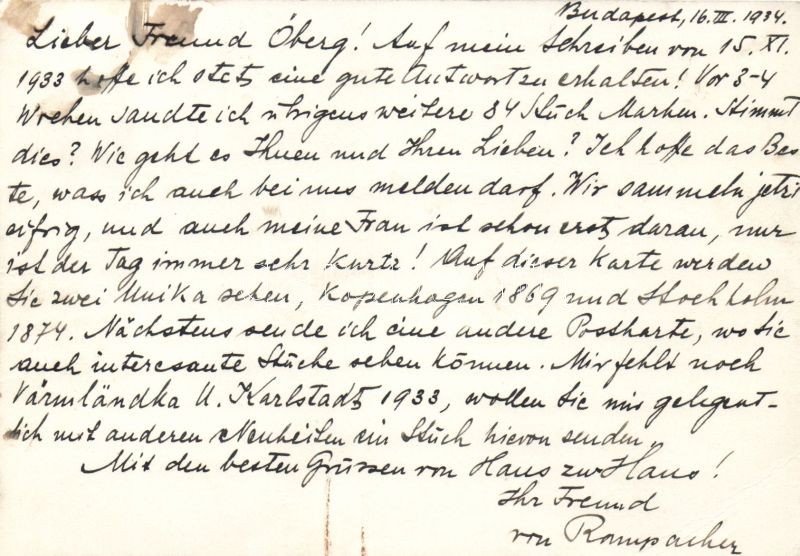 Budapest, 16. III. 1934.
Lieber Freund Öberg! Auf mein Schreiben von 15. XI.
1933 hoffe ich stets eine gute Antwort zu erhalten! Vor 3-4
Wochen sandte ich übrigens weitere 84 Stück Marken. Stimmt
dies? Wie geht es Ihnen und Ihren Lieben? Ich hoffe das Bes-
te, was ich auch bei uns melden darf. Wir sammeln jetzt
eifrig, und auch meine Frau ist schon erst daran, nur
ist der Tag immer sehr kurtz! Auf dieser Karte werden
Sie zwei Unika sehen, Kopenhagen 1869 und Stockholm
1874. Nächstens sende ich eine andere Postkarte, wo Sie
auch interesante Stücke sehen können. Mir fehlt noch
Värmländka U. Karlstadt 1933, wollen Sie mir gelegent-
lich mit anderen Neuheiten ein Stück hievon senden.
Mit den besten Grüssen von Haus zu Haus!
Ihr Freund
von Rompacher